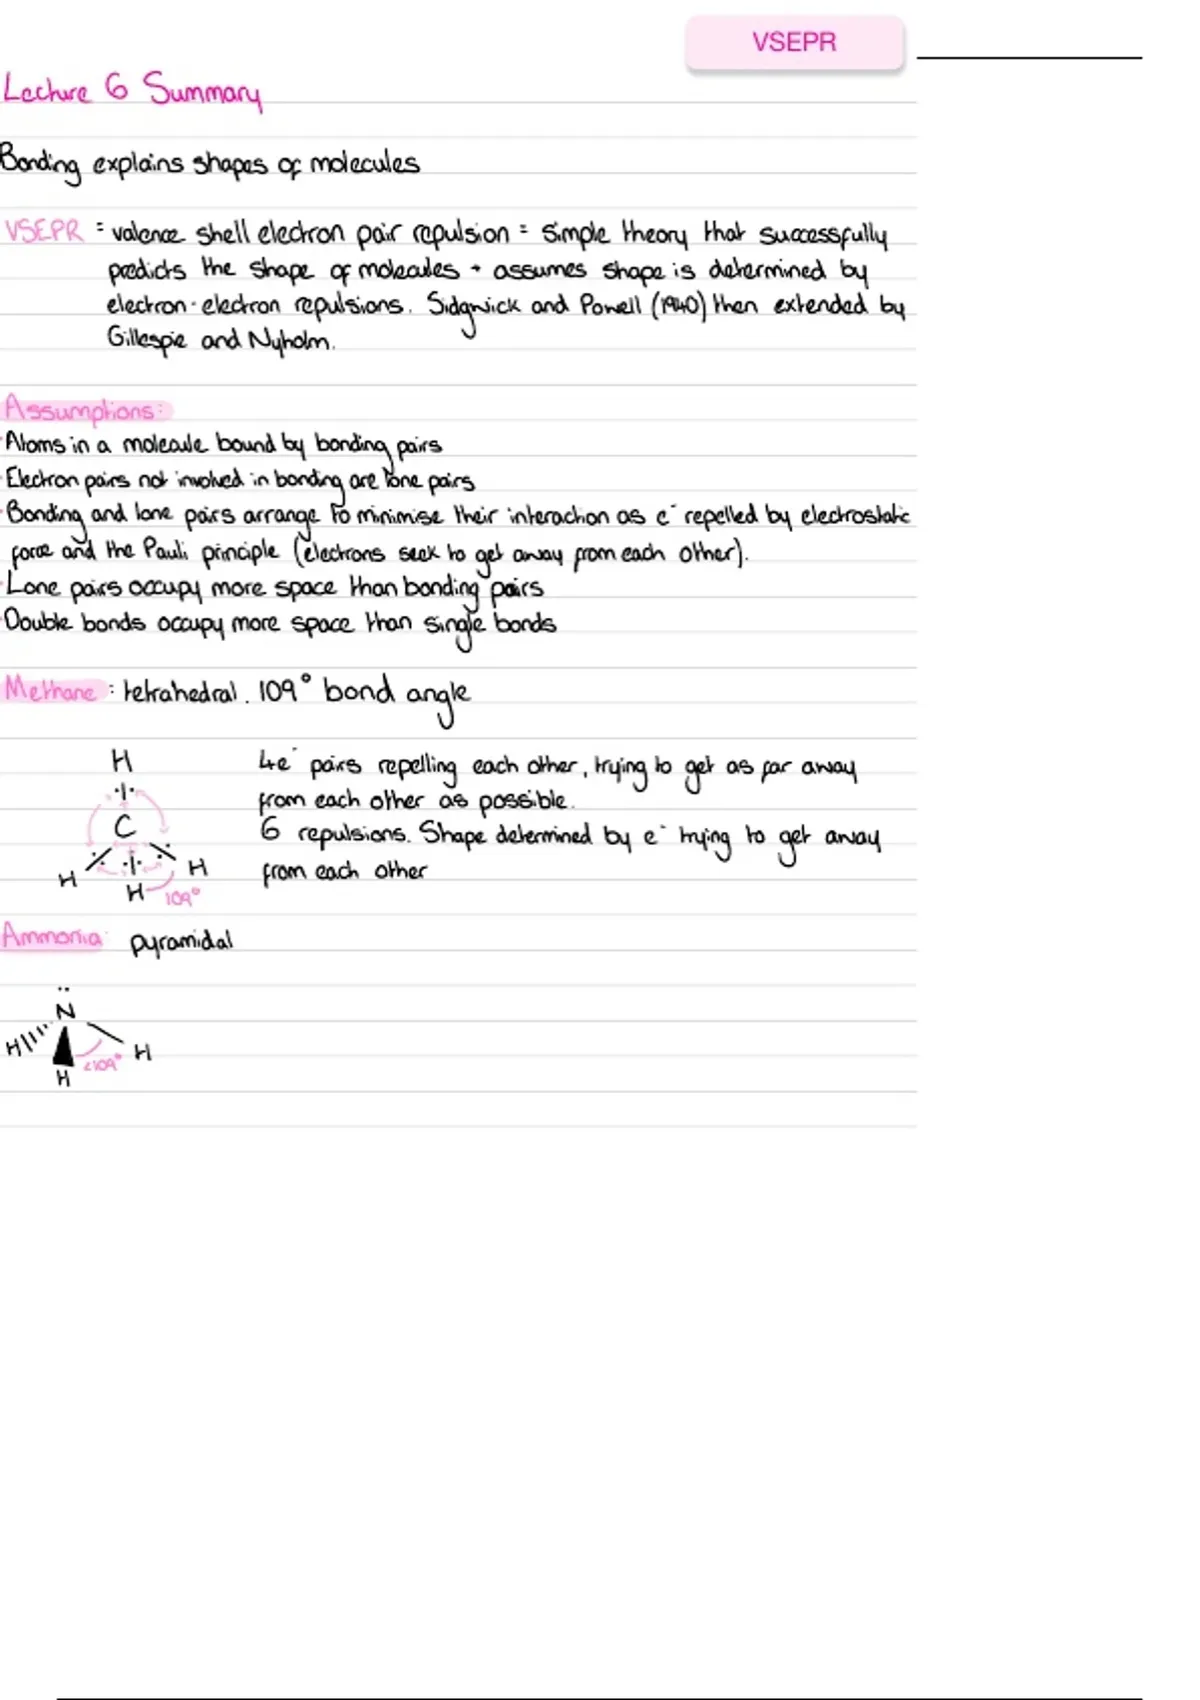 VSEPR
Lecture 6 Summary
Bonding explains shapes of molecules
VSEPR = valence shell electron pair repulsion = simple theory that successfully
predicts the shape of molecules → assumes shape is determined by
electron-electron repulsions. Sidgwick and Powell (1940) then extended by
Gillespie and Nyholm.
Assumptions:
·Atoms in a molecule bound by bonding pairs
·Electron pairs not involved in bonding are lone pairs
·Bonding and lone pairs arrange to minimise their interaction as e⁻ repelled by electrostatic
force and the Pauli principle (electrons seek to get away from each other).
·Lone pairs occupy more space than bonding pairs
·Double bonds occupy more space than single bonds
Methane: tetrahedral. 109° bond angle
H
C
H H
H 109°
4e⁻ pairs repelling each other, trying to get as far away
from each other as possible.
6 repulsions. Shape determined by e⁻ trying to get away
from each other
Ammonia: pyramidal
N
H H
<109°
H